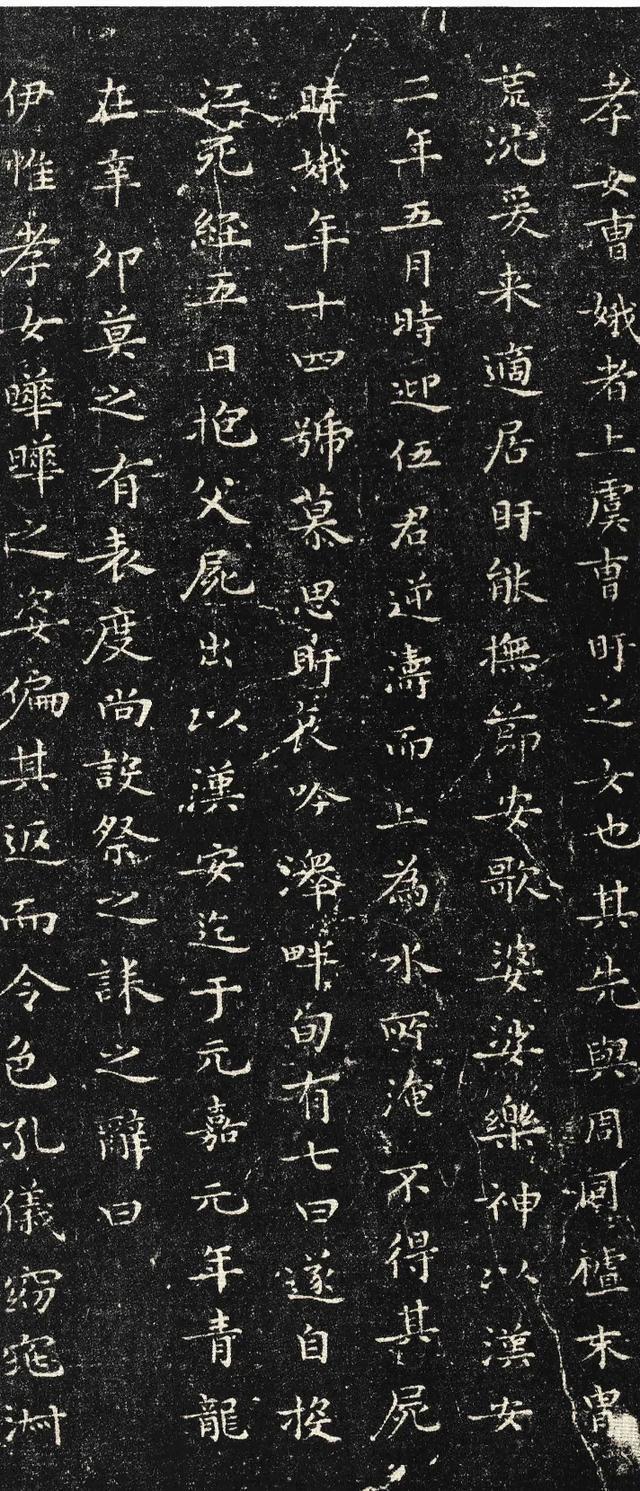 孝女曺娥者上虞曺盱之女也其先與周同祖末胄
荒沈爰来適居盱能撫節安歌婆娑樂神以漢安
二年五月時迎伍君逆濤而上為水所淹不得其屍
時娥年十四號慕思盱哀吟澤畔旬有七日遂自投
江死經五日抱父屍出以漢安迄于元嘉元年青龍
在辛卯莫之有表度尚設祭之誄之辭曰
伊惟孝女曄曄之姿偏其返而令色孔儀窈窕淑